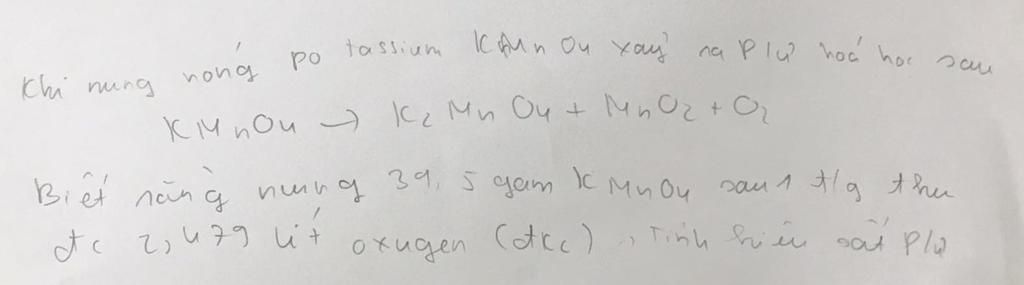 Khi nung nóng po tassium KMnO4 xảy ra P/ư hoá học sau
KMnO4 → K2MnO4 + MnO2 + O2
Biết rằng nung 39,5 gam KMnO4 sau 1 t/g thu
đc 2,479 lít oxugen (đkc), Tính hiệu sất P/ư